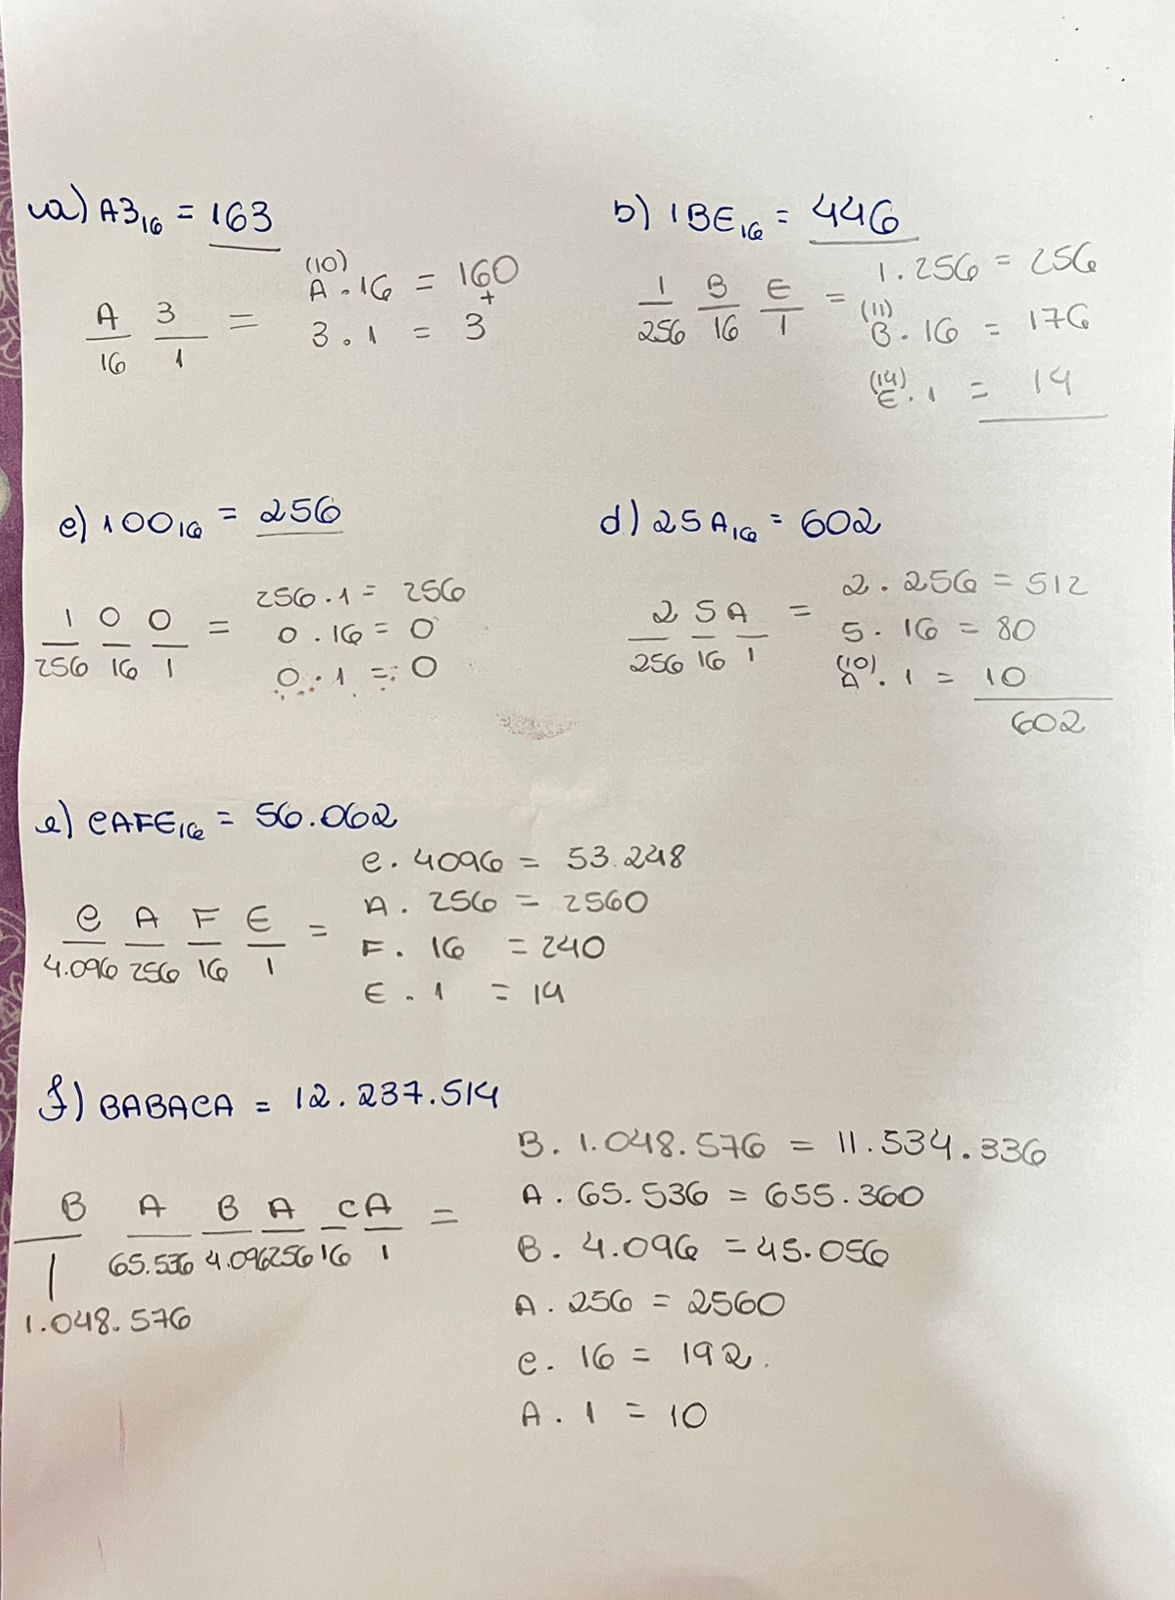 a) A3₁₆ = 163
(10)
A . 16 = 160
+
A 3 =
16 1
3 . 1 = 3
b) 1BE₁₆ = 446
1 B E =
256 16 1
1 . 256 = 256
(11)
B . 16 = 176
(14)
E . 1 = 14
c) 100₁₆ = 256
1 0 0 =
256 16 1
256 . 1 = 256
0 . 16 = 0
0 . 1 = 0
d) 25A₁₆ = 602
2 5 A =
256 16 1
2 . 256 = 512
5 . 16 = 80
(10)
A . 1 = 10
602
e) CAFE₁₆ = 56.062
C A F E =
4.096 256 16 1
C . 4096 = 53.248
A . 256 = 2560
F . 16 = 240
E . 1 = 14
f) BABACA = 12.237.514
B A B A C A =
65.536 4.096 256 16 1
1.048.576
B . 1.048.576 = 11.534.336
A . 65.536 = 655.360
B . 4.096 = 45.056
A . 256 = 2560
C . 16 = 192.
A . 1 = 10